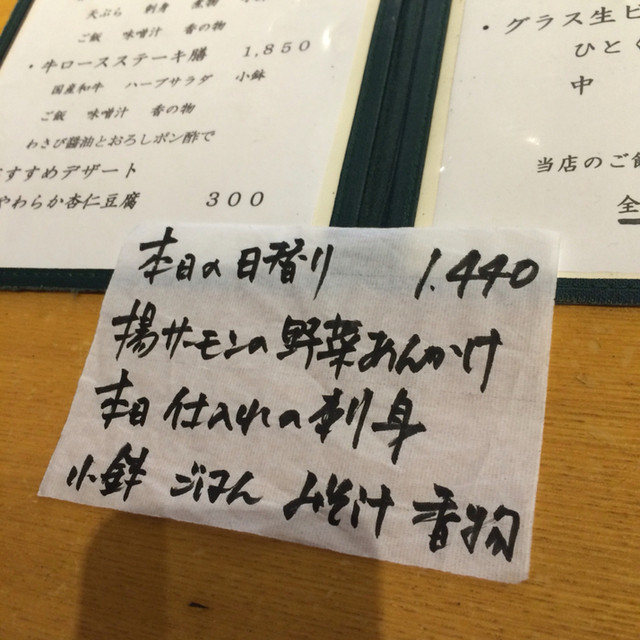 天ぷら 刺身 煮物
ご飯 味噌汁 香の物
・牛ロースステーキ膳 1,850
国産和牛 ハーブサラダ 小鉢
ご飯 味噌汁 香の物
わさび醤油とおろしポン酢で
すすめデザート
やわらか杏仁豆腐 300
・グラス生ビ
ひとく
中
当店のご飯
全
本日の日替り 1.440
揚サーモンの野菜あんかけ
本日仕入れの刺身
小鉢 ごはん みそ汁 香物